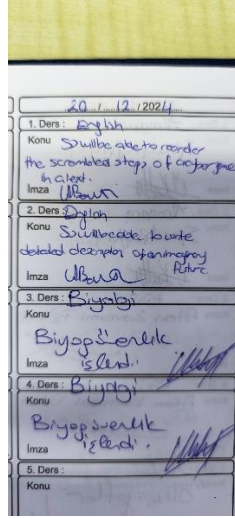 20 / 12 / 2024
1. Ders : English
Konu
S will be able to reorder
the scrambled steps of
in a text.
İmza
2. Ders :
Konu
S will be able to write
detailed of an imaginary
Future
İmza
3. Ders : Biyoloji
Konu
Biyogüvenlik
işlendi.
İmza
4. Ders : Biyoloji
Konu
Biyogüvenlik
işlendi.
İmza
5. Ders :
Konu